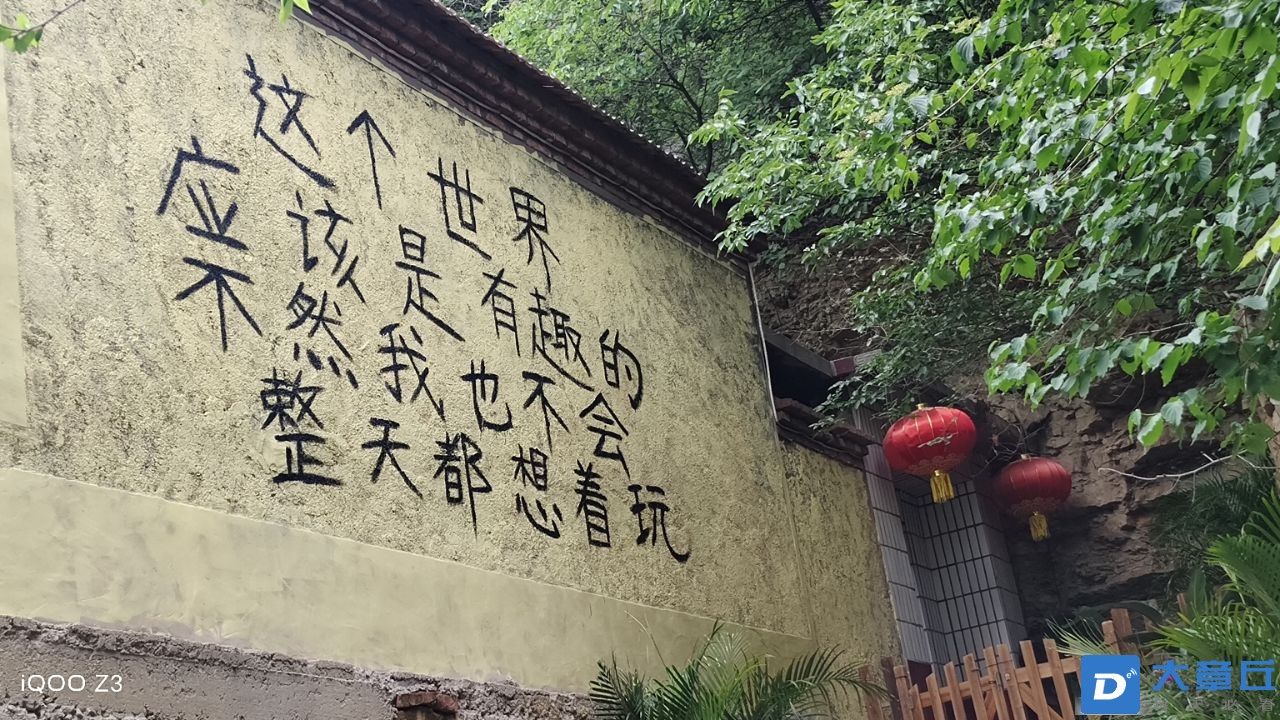 这个世界
应该是有趣的
不然我也不会
整天都想着玩
iQOO Z3
大章丘